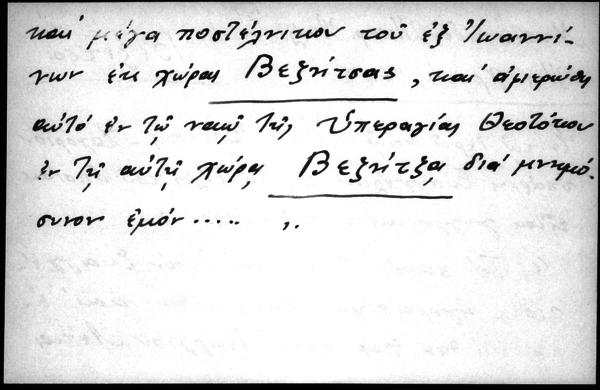 καί μέγα ποστέλνικον τοῦ ἐξ Ἰωαννί-
νων ἐκ χώρας Βεζνίτσας, καί ἀφιερώθη
αὐτό ἐν τῷ ναῷ τῆς Ὑπεραγίας Θεοτόκου
ἐν τῇ αὐτῇ χώρᾳ Βεζνίτζᾳ διά μνημό-
συνον ἐμόν..... ,.